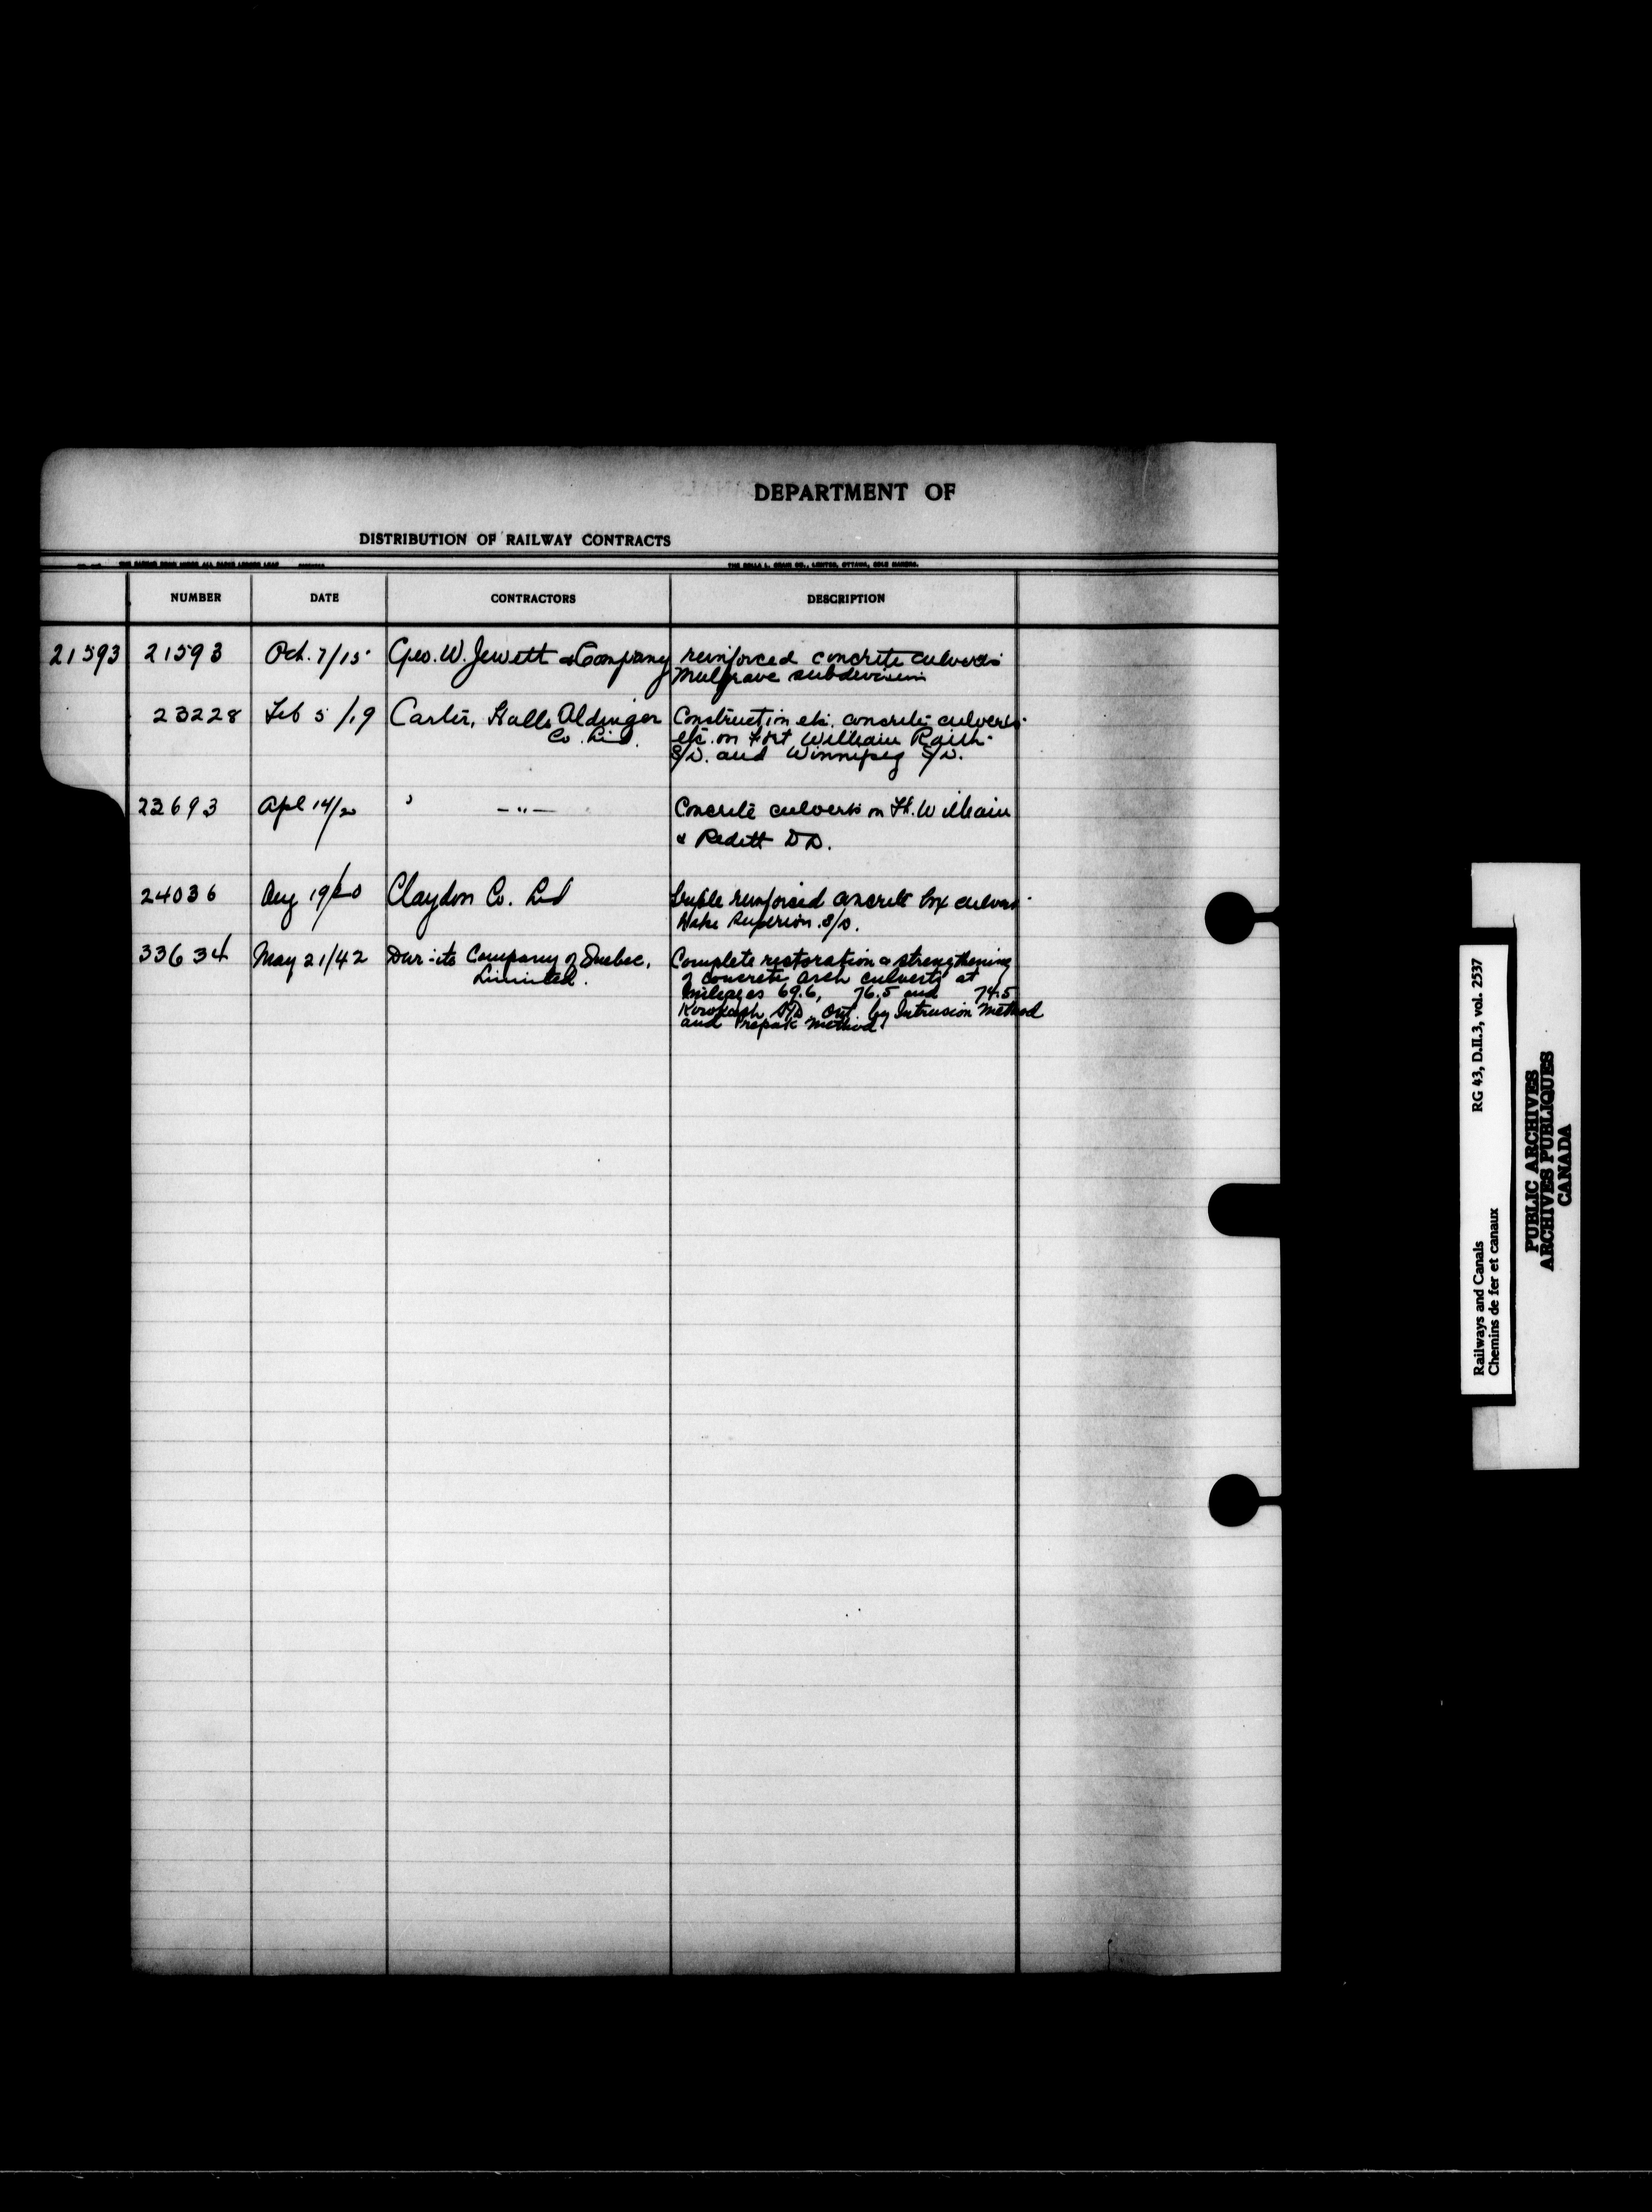 DEPARTMENT OF
DISTRIBUTION OF RAILWAY CONTRACTS
NUMBER DATE CONTRACTORS DESCRIPTION
21593 21593 Oct. 7/15 Geo. W. Jewett & Company reinforced concrete culverts
Mulgrave subdivision
23228 Feb 5/19 Carter, Halls Aldinger Construction etc. concrete culverts
Co. Ltd. etc. on Fort William Raith
S/D. and Winnipeg S/D.
23693 Apl 14/20 " —"— Concrete culverts on Ft. William
& Reditt DD.
24036 Aug 19/20 Claydon Co. Ltd reinforced concrete box culvert
Lake Superior S/D.
33634 May 21/42 Dur-ite Company of Quebec, Complete restoration & strengthening
Limited. of concrete arch culverts at
Mileages 69.6, 76.5 and 74.5
S/D. Ont. by Intrusion Method
and Prepak Method
Railways and Canals RG 43, D.II.3, vol. 2537
Chemins de fer et canaux
PUBLIC ARCHIVES
ARCHIVES PUBLIQUES
CANADA